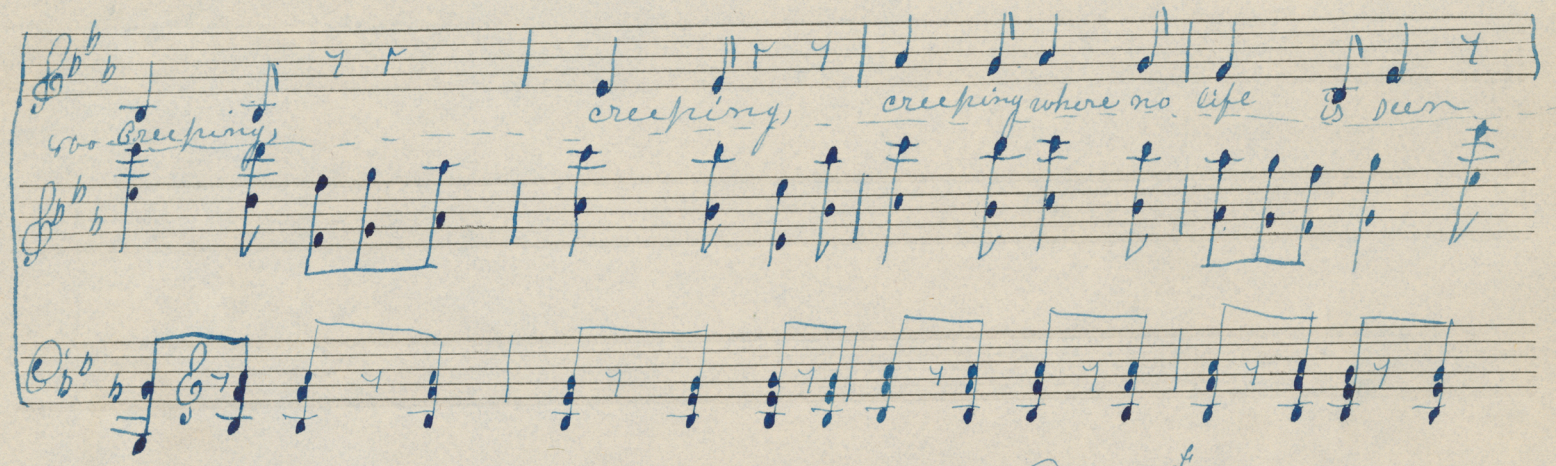 Creeping, creeping, creeping where no life is seen